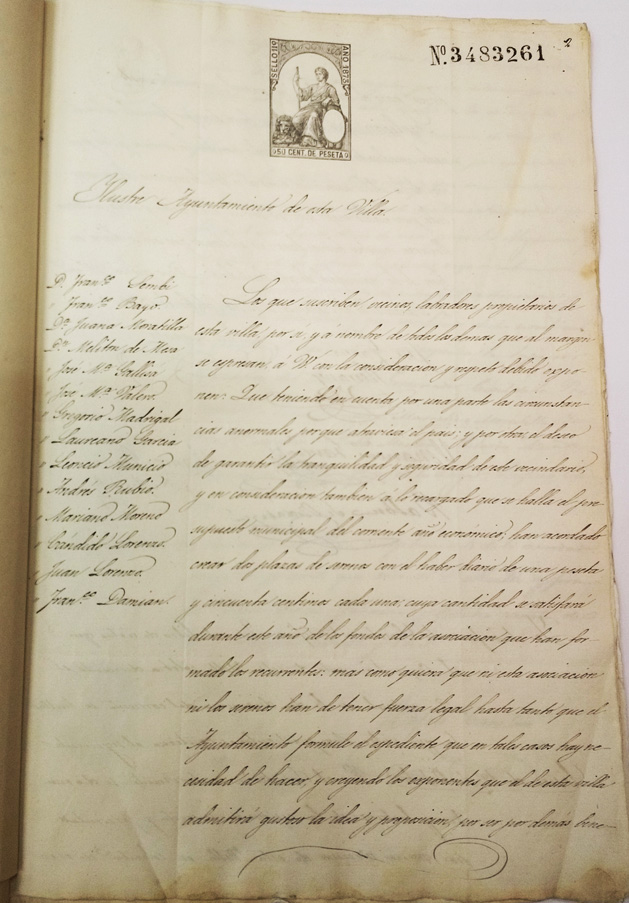 2
Nº. 3483261
SELLO 11º
AÑO 1873
50 CENT. DE PESETA
Ilustre Ayuntamiento de esta Villa.
D. Franco. Sembi
" Franco. Bayo
Dª. Juana Moratilla
Dn. Melitón de Mesa
" José Mª. Gallisa
" José Mª. Valero
" Gregorio Madrigal
" Laureano Garcia
" Leoncio Municio
" Andrés Rubio
" Mariano Moreno
" Cándido Lorenzo
" Juan Lorenzo.
" Franco. Damian.
Los que suscriben vecinos, labradores propietarios de
esta villa, por sí, y á nombre de todos los demas que al margen
se espresan, á V con la consideracion y respeto debido espo-
nen: Que teniendo en cuenta por una parte las circunstan-
cias anormales porque atraviesa el pais; y por otra, el deseo
de garantir la tranquilidad y seguridad de este vecindario,
y en consideracion tambien á lo recargado que se halla el pre-
supuesto municipal del corriente año económico, han acordado
crear dos plazas de serenos con el haber diario de una peseta
y cincuenta centimos cada una; cuya cantidad se satisfará
durante este año de los fondos de la asociacion que han for-
mado los recurrentes: más como quiera que ni esta asociacion
ni los serenos han de tener fuerza legal hasta tanto que el
Ayuntamiento formule el espediente que en tales casos hay ne-
cesidad de hacer, y creyendo los esponentes que el de esta villa
admitirá gustoso la idea y proposicion, por ser por demas bene-